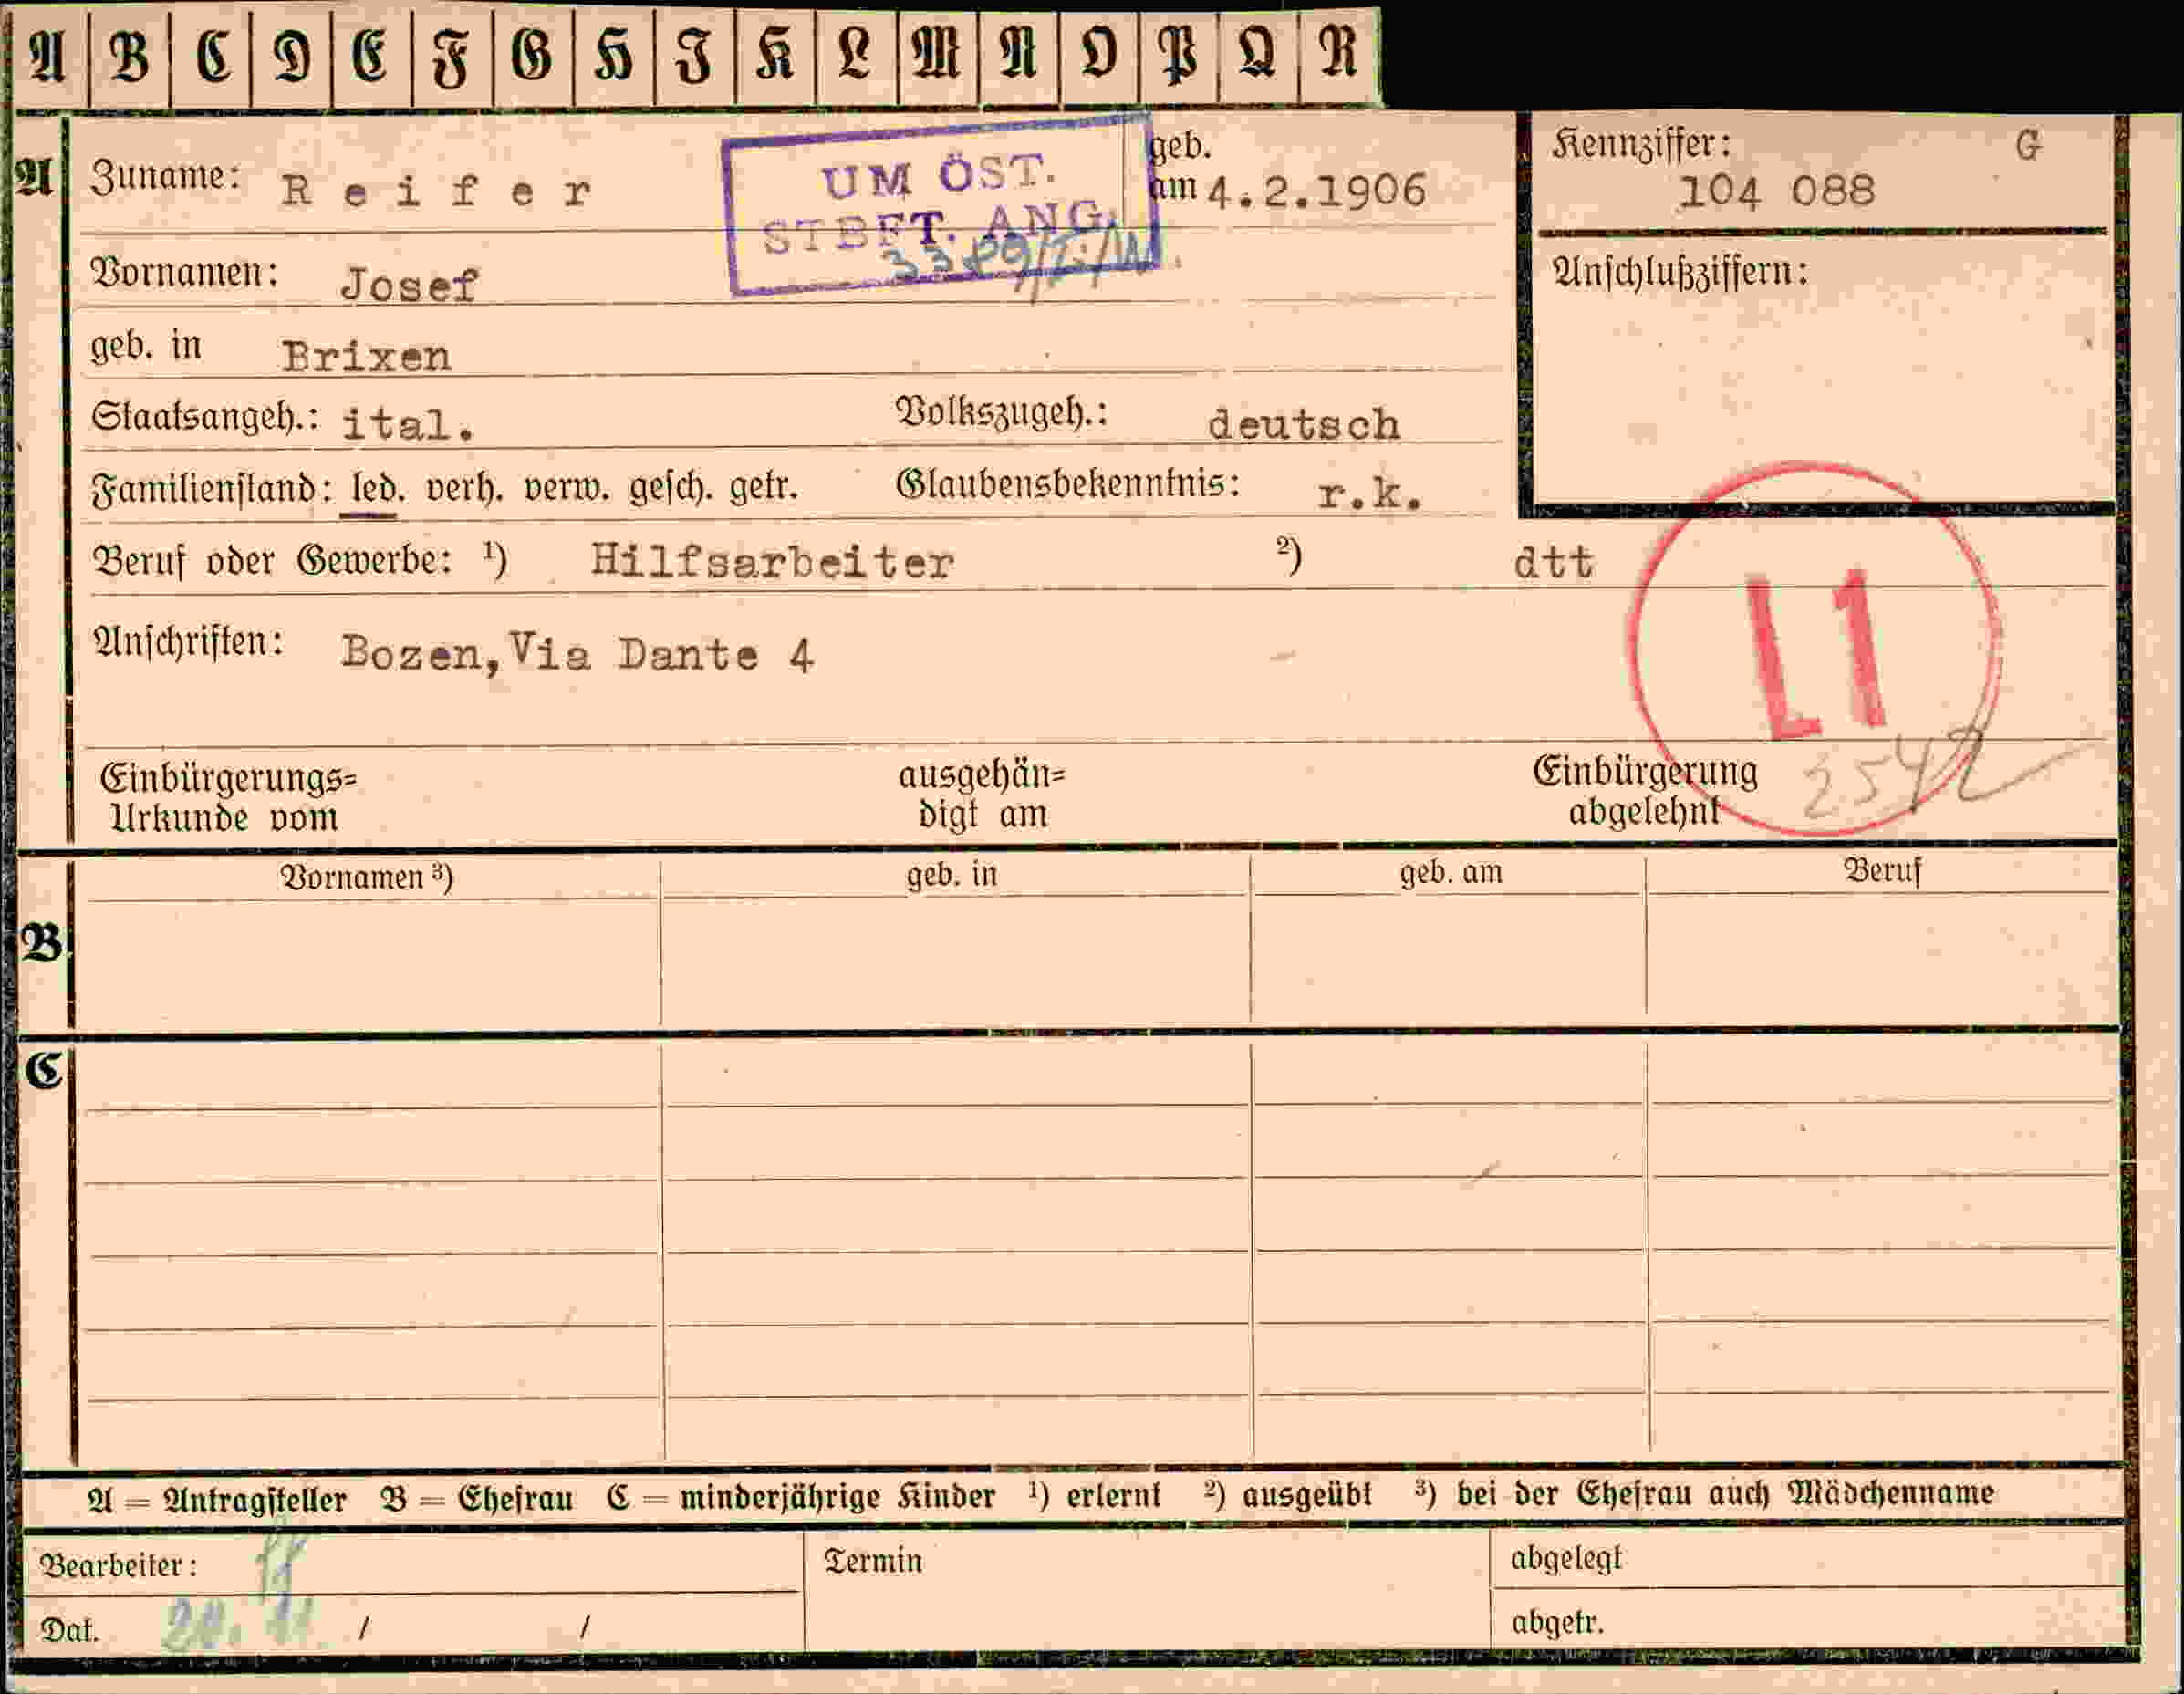 A B C D E F G H I K L M N O P Q R
A Zuname: Reifer
geb. am 4.2.1906
UM ÖST.
STBFT. ANG.
Kennziffer: G
104 088
Vornamen: Josef
Anschlußziffern:
geb. in Brixen
Staatsangeh.: ital. Volkszugeh.: deutsch
Familienstand: led. verh. verw. gesch. getr. Glaubensbekenntnis: r.k.
Beruf oder Gewerbe: ¹) Hilfsarbeiter ²) dtt
L1
Anschriften: Bozen, Via Dante 4
Einbürgerungs=
Urkunde vom
ausgehän=
digt am
Einbürgerung
abgelehnt
B Vornamen ³) geb. in geb. am Beruf
C
A = Antragsteller B = Ehefrau C = minderjährige Kinder ¹) erlernt ²) ausgeübt ³) bei der Ehefrau auch Mädchenname
Bearbeiter: Termin abgelegt
Dat. / / abgetr.